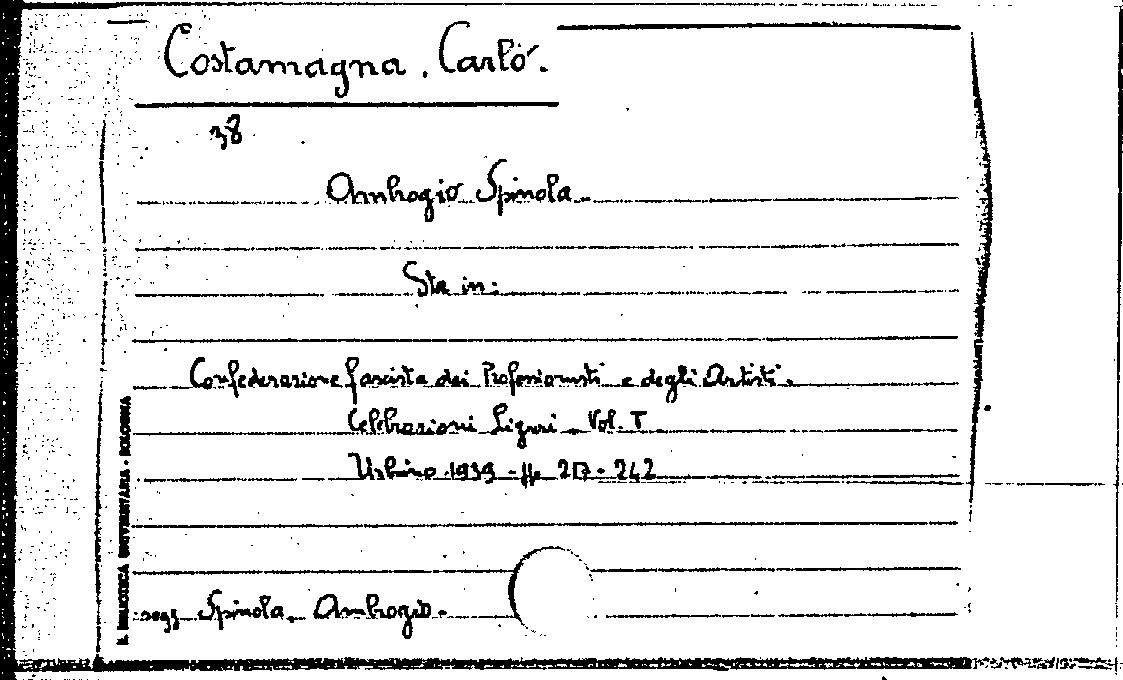 Costamagna, Carlo.
38
Ambrogio Spinola.
Sta in:
Confederazione fascista dei Professionisti e degli Artisti.
Celebrazioni Liguri. Vol. I
Urbino 1939 - pp. 217 - 242
sogg Spinola, Ambrogio.
R. BIBLIOTECA UNIVERSITARIA - BOLOGNA